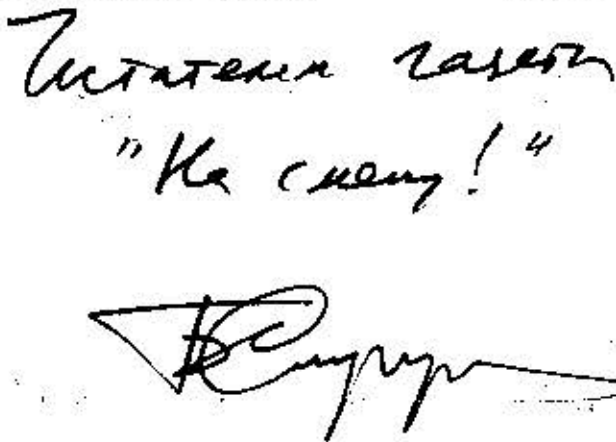 Читателям газеты
"На смену!"